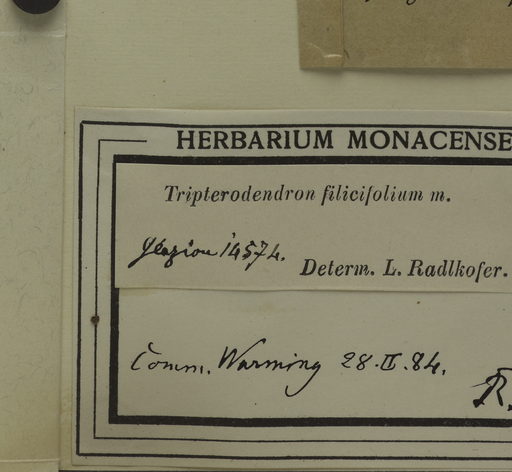 HERBARIUM MONACENSE
Tripterodendron filicifolium m.
Glaziou 14574.
Determ. L. Radlkofer.
Comm. Warming 28.II.84.
R.